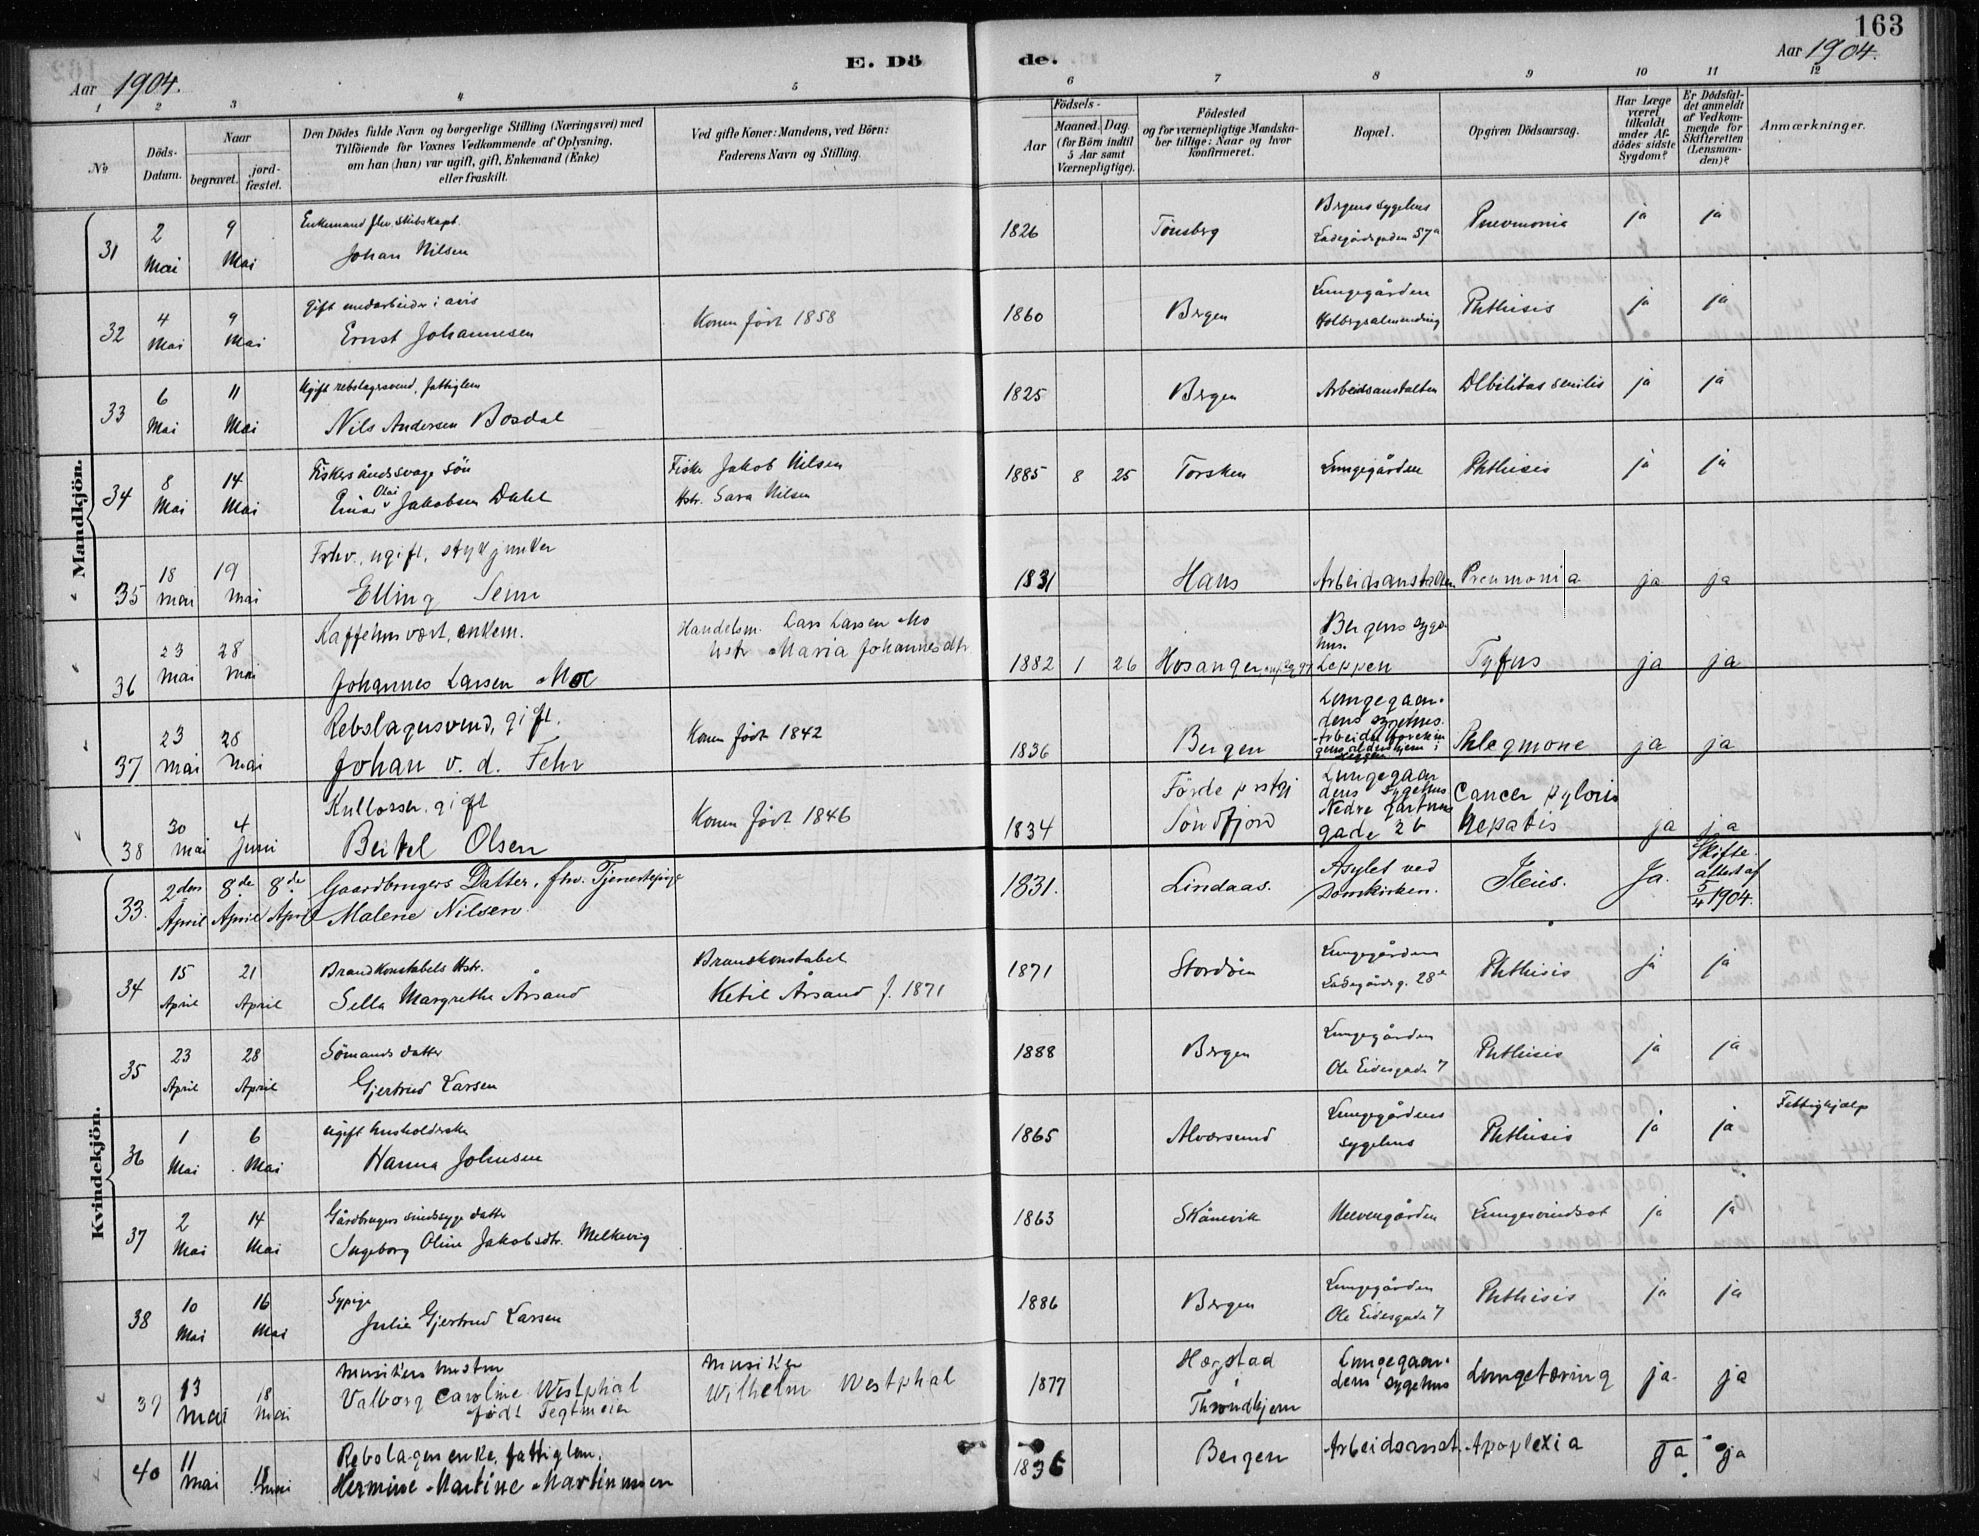 163
E. Dö de.
Aar 1904.
Aar 1904.
1 2 3 4 5 6 7 8 9 10 11 12
No
Döds-Datum.
Naar
begravet.
jordfæstet.
Den Dödes fulde Navn og borgerlige Stilling (Næringsvei) med
Tilföiende for Voxnes Vedkommende af Oplysning,
om han (hun) var ugift, gift, Enkemand (Enke)
eller fraskilt.
Ved gifte Koner: Mandens, ved Börn:
Faderens Navn og Stilling.
Födsels-
Aar
Maaned. Dag.
(for Börn indtil
5 Aar samt
Værnepligtige).
Födested
og for værnepligtige Mandskaber
tillige: Naar og hvor
konfirmeret.
Bopæl.
Opgiven Dödsaarsag.
Har Læge
været
tilkaldt
under Afdödes
sidste
Sygdom?
Er Dödsfaldet
anmeldt
af Vedkommende
for
Skifteretten
(Lensmanden)?
Anmærkninger.
Mandkjön.
31 2 Mai 9 Mai
Enkemand fhv. Skibskapt.
Johan Nilsen
1826 Tönsberg
Bergens sygehus
Ladegårdsgaden 57a
Pnevmonia ja ja
32 4 Mai 9 Mai
Gift medarbeider i avis
Ernst Johannesen
Konen født 1858
1860 Bergen
Lungegården
Holbergsalmending
Phthisis ja ja
33 6 Mai 11 Mai
Ugift rebslagersvend, fattiglem
Nils Andersen Bosdal
1825 Bergen Arbeidsanstalten Debilitas senilis ja ja
34 8 Mai 14 Mai
Fiskers åndssvage sön
Einar Olai Jakobsen Dalel
Fisker Jakob Nilsen
Hstr. Sara Nilsen
1885 8 25 Torsken Lungegården Phthisis ja ja
35 18 mai 19 mai
Frhv., ugift, stykjunker
Elling Senn
1831 Haus Arbeidsanstalten Pneumonia ja ja
36 23 mai 28 mai
Kaffehusvært, enkem.
Johannes Larsen Moe
Handelsm. Lars Larsen Mo
Hstr Maria Johannesdtr.
1882 1 26 Hosanger
Bergens sygehus.
Leppen
Tyfus ja ja
37 23 mai 28 mai
Rebslagersvend, gift.
Johan v. d. Fehr
Konen født 1842
1836 Bergen
Lungegaardens
sygehus.
Phlegmone ja ja
38 30 mai 4 Juni
Kullosser, gift
Bertel Olsen
Konen født 1846
1834
Förde prstgj
Söndfjord
Lungegaardens
sygehus
Nedre
gade 2b
Cancer pyloris
hepatis
ja ja
Kvindekjön.
33. 2den April 8de April 8de April
Gaardbrugers Datter, fhv. Tjenestepige
Malene Nilsen
1831. Lindaas.
Asylet ved
Domkirken.
Ileus. Ja.
Skifte-
attest af
5/4 1904.
34 15 April 21 April
Brandkonstabels Hstr.
Sella Margrethe Årsand
Brandkonstabel
Ketil Årsand f. 1871
1871 Stordöen
Lungegården
Ladegårdsg. 28e
Phthisis ja ja
35 23 April 28 April
Sömands datter
Gjertrud Larsen
1888 Bergen
Lungegården
Ole Eidesgade 7
Phthisis ja ja
36 1 Mai 6 Mai
ugift husholderske
Hanna Johnsen
1865 Alversund
Lungegårdens
sygehus
Phthisis ja ja Fattighjælp
37 2 Mai 14 Mai
Gårdbrugers sindssyge datter
Ingeborg Oline Jakobsdtr. Melkevig
1863 Skånevik Neevengården Lungesvindsot ja ja
38 10 Mai 16 Mai
Sypige
Julie Gjertrud Larsen
1886 Bergen
Lungegården
Ole Eidesgade 7
Phthisis ja ja
39 13 Mai 18 Mai
Musikers hustru
Valborg Caroline Westphal
født Tegtmeier
Musiker
Wilhelm Westphal
1877
Throndhjem
Lungegaardens
sygehus
Lungetæring ja ja
40 11 mai 18
Rebslagerenke, fattiglem.
Hermine Martine Martinussen
1836 Bergen Arbeidsanst. Apoplexia ja ja